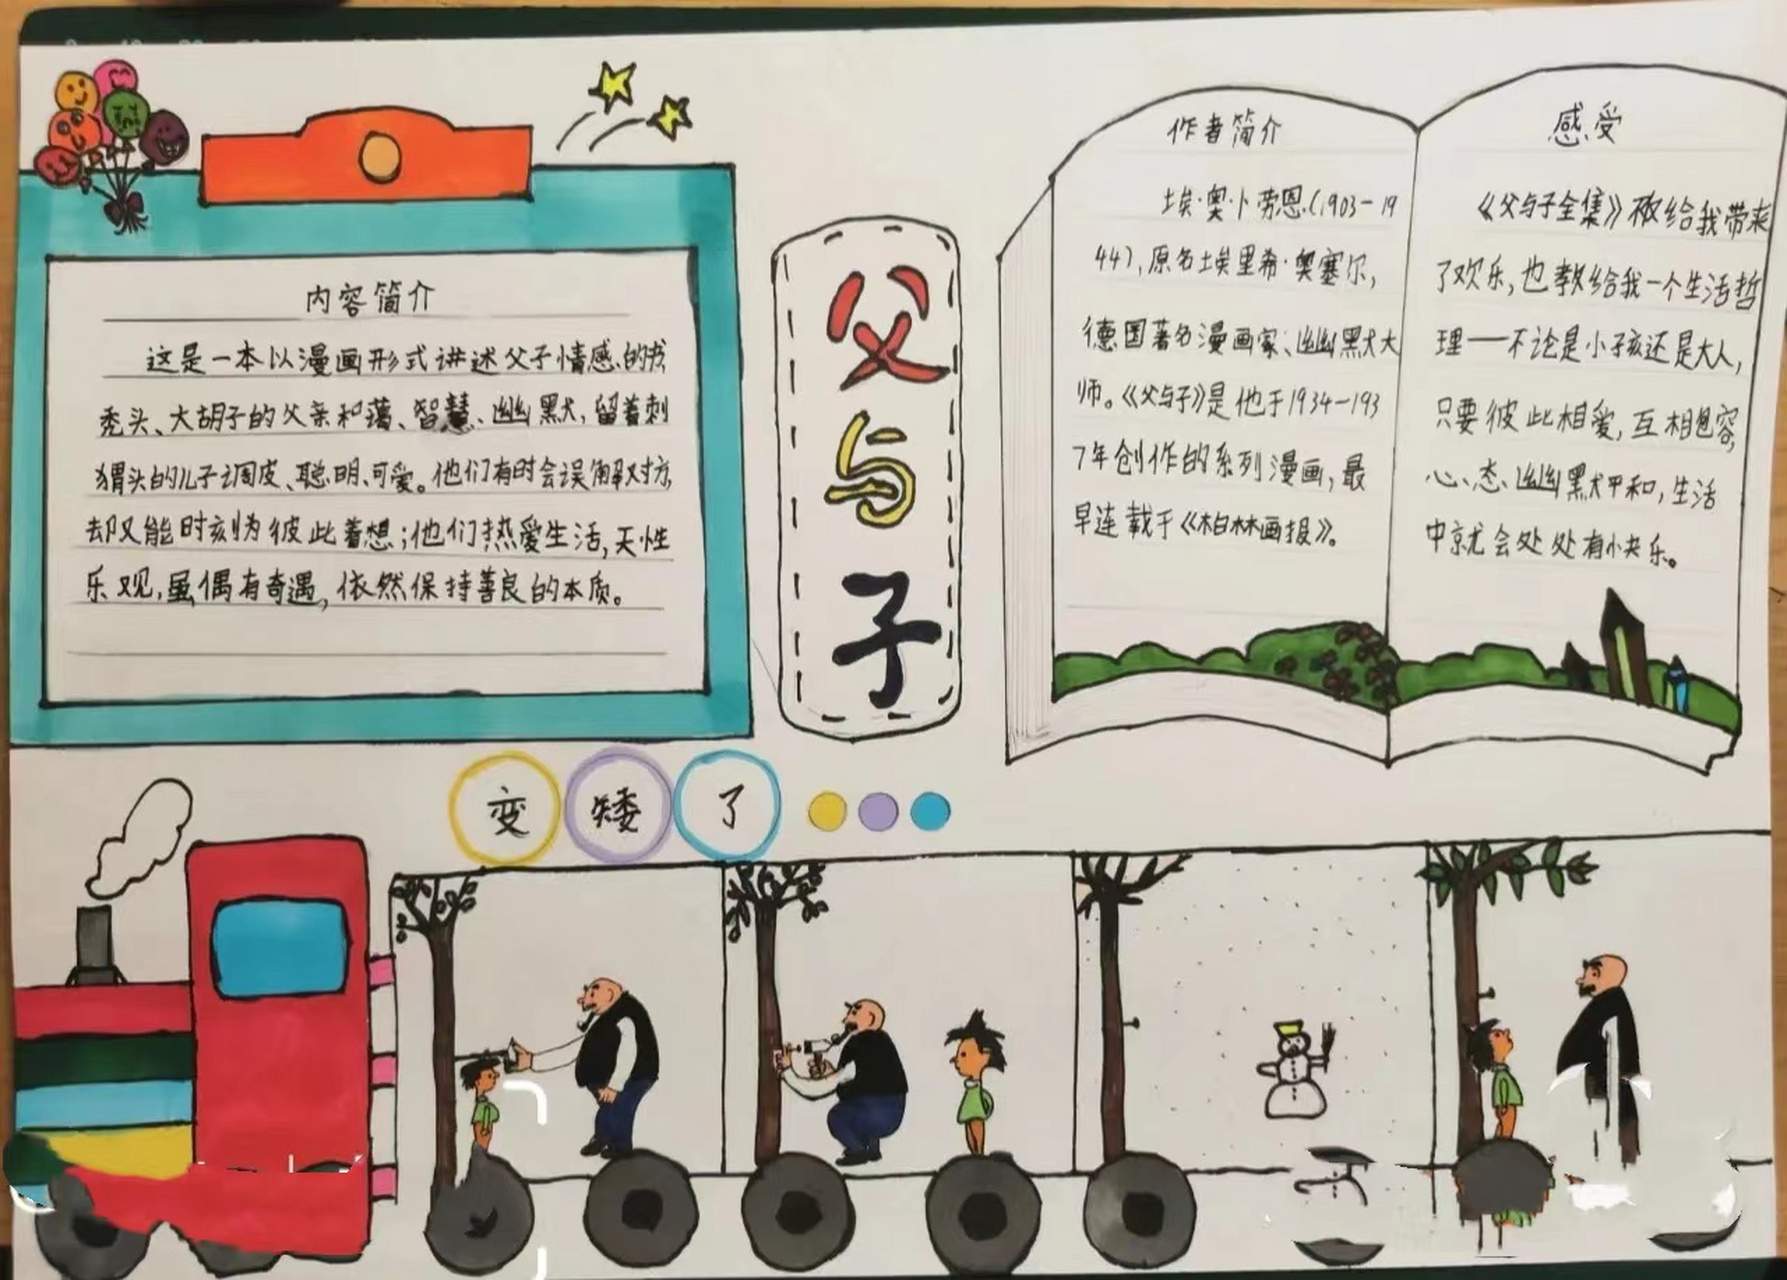 内容简介
这是一本以漫画形式讲述父子情感的书
秃头、大胡子的父亲和蔼、智慧、幽默，留着刺
猬头的儿子调皮、聪明、可爱。他们有时会误解对方，
却又能时刻为彼此着想；他们热爱生活，天性
乐观，虽偶有奇遇，依然保持善良的本质。
父
与
子
作者简介
埃·奥·卜劳恩（1903-19
44），原名埃里希·奥塞尔，
德国著名漫画家、幽默大
师。《父与子》是他于1934-193
7年创作的系列漫画，最
早连载于《柏林画报》。
感受
《父与子全集》不仅给我带来
了欢乐，也教给我一个生活哲
理——不论是小孩还是大人，
只要彼此相爱，互相包容，
心态幽默平和，生活
中就会处处有快乐。
变矮了